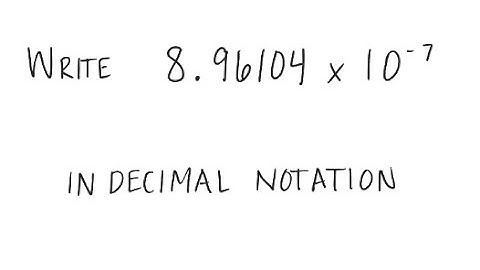 WRITE 8.96104 x 10⁻⁷
IN DECIMAL NOTATION